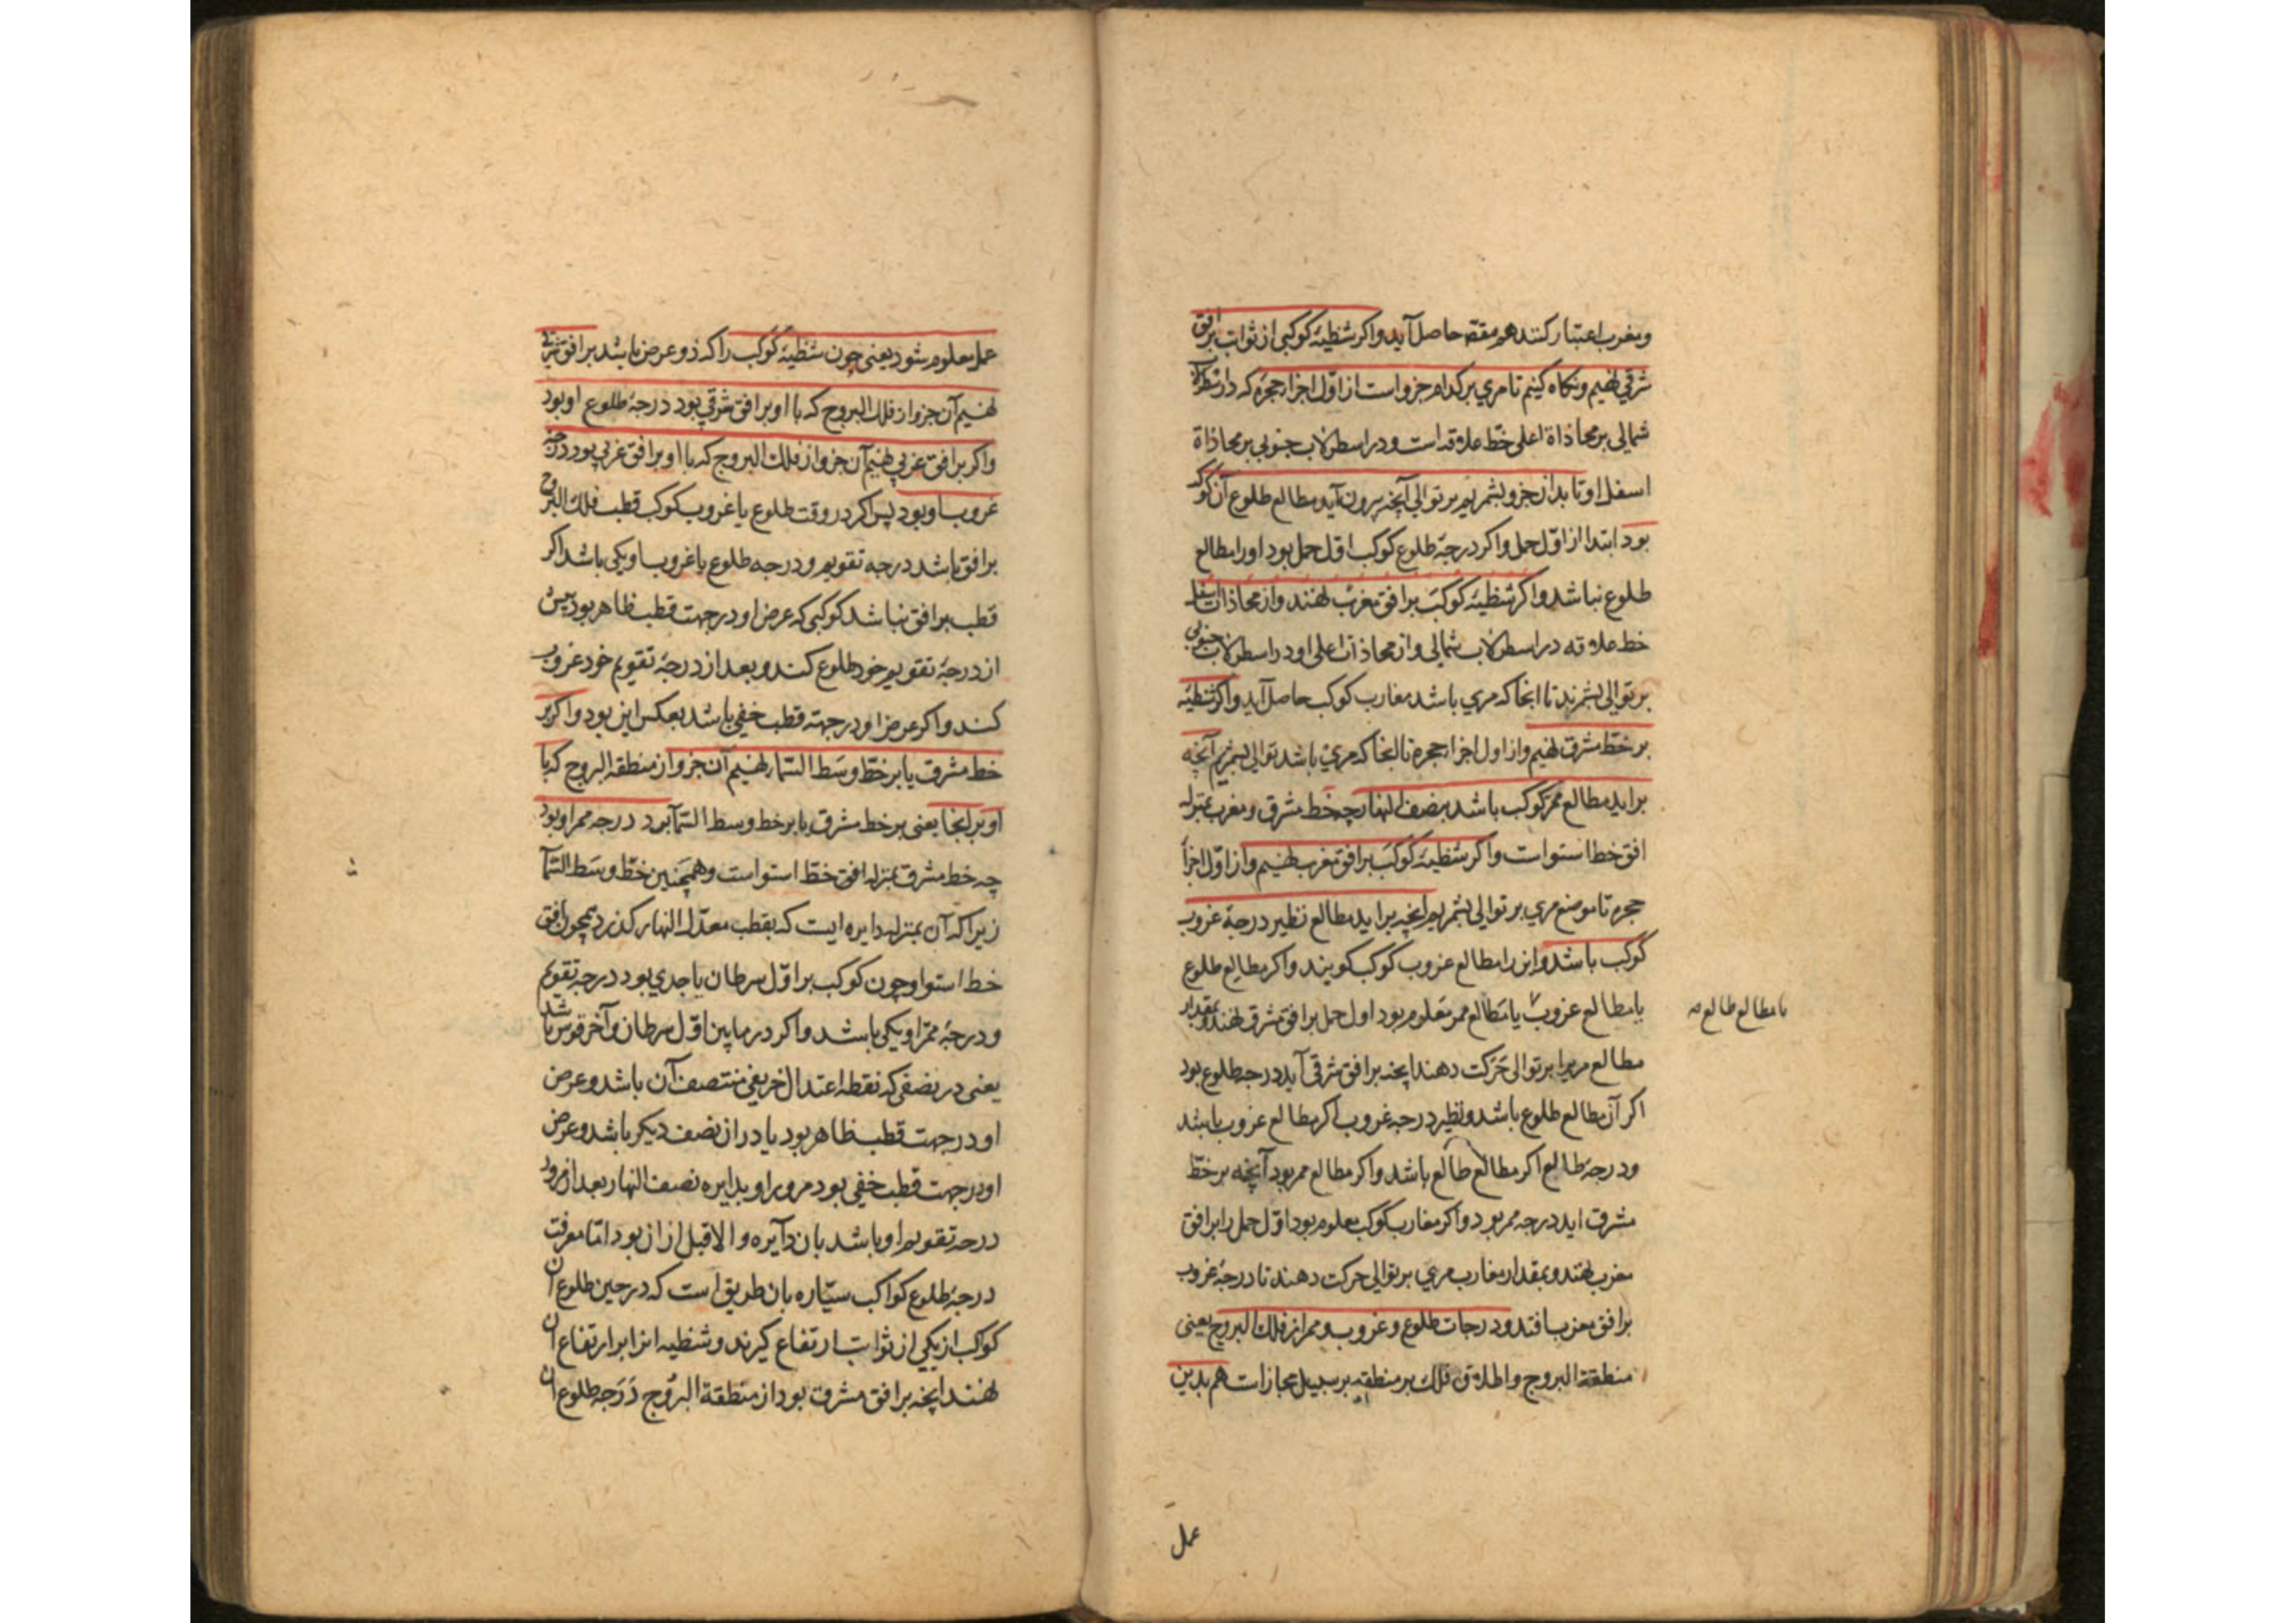 ومغرب اعتبار کنند هم مقصد حاصل آید واکر شظیهٔ کوکبی از ثوابت بر افق
شرقی نهیم و نکاه کنیم تا مری بر کدام جزو است از اوّل اجزا حجره که در
شمالی بر محاذاة اعلی خطّ علاقه است و در اسطرلاب جنوبی بر محاذاة
اسفل او تا بدان جزو بشمریم بر توالی آنچه بیرون آید مطالع طلوع آن کوکب
بود ابتدا از اوّل حمل واکر درجهٔ طلوع کوکب اوّل حمل بود او را مطالع
طلوع نباشد واکر شظیهٔ کوکب بر افق مغرب نهند و از محاذات اسفل
خط علاقه در اسطرلاب شمالی و از محاذات اعلی او در اسطرلاب جنوبی
بر توالی بشمرند تا انجا که مری باشد مغارب کوکب حاصل آید واکر شظیّه
بر خطّ مشرق نهیم و از اول اجزا حجره تا انجا که مری باشد بتوالی بشمریم آنچه
براید مطالع ممرّ کوکب باشد بنصف النهار چه خط مشرق و مغرب بمنزله
افق خط استوا است واکر شظیّهٔ کوکب بر افق مغرب نهیم و از اوّل اجزا
حجره تا موضع مری بر توالی بشمریم انچه براید مطالع نظیر درجهٔ غروب
کوکب باشد و این را مطالع غروب کوکب کویند واکر مطالع طلوع
یا مطالع غروب یا مطالع ممر معلوم بود اول حمل بر افق مشرق نهند و بمقدار
یا مطالع طالع صه
مطالع مریرا بر توالی حرکت دهند انچه بر افق شرقی آید درجه طلوع بود
اکر آن مطالع طلوع باشد و نظیر درجه غروب اکر مطالع غروب باشد
ودرجهٔ طالع اکر مطالع طالع باشد واکر مطالع ممر بود آنچه بر خطّ
مشرق اید درجه ممر بود واکر مغارب کوکب معلوم بود اوّل حمل را بر افق
مغرب نهند و بمقدار مغارب مری بر توالی حرکت دهند تا درجهٔ غروب
بر افق مغرب افتد و درجات طلوع و غروب و ممر از فلک البروج یعنی
منطقة البروج و اطلاق فلک بر منطقه بر سبیل مجاز است هم بدین
عمل
عمل معلوم شود یعنی چون شظیّهٔ کوکب را که ذو عرض باشد بر افق شرقی
نهیم آن جزو از فلک البروج که با او بر افق شرقی بود درجهٔ طلوع او بود
واکر بر افق غربی نهیم آن جزو از فلک البروج که با او بر افق غربی بود درجه
غروب او بود پس اکر در وقت طلوع یا غروب کوکب قطب فلک البروج
بر افق باشد درجه تقویم و درجه طلوع یا غروب او یکی باشد اکر
قطب بر افق نباشد کوکبی که عرض او در جهت قطب ظاهر بود پیش
از درجهٔ تقویم خود طلوع کند و بعد از درجهٔ تقویم خود غروب
کند واکر عرض او در جهت قطب خفی باشد بعکس این بود واکر بر
خط مشرق یا بر خطّ وسط السّماء نهیم آن جزو از منطقه البروج که با
او بر انجا یعنی بر خط مشرق یا بر خط وسط السّماء بود درجه ممر او بود
چه خط مشرق بمنزله افق خطّ استوا است و همچنین خطّ وسط السّماء
زیرا که آن بمنزله دایره ایست که بقطب معدّل النهار کذرد همچون افق
خط استوا و چون کوکب بر اوّل سرطان یا جدی بود درجه تقویم
ودرجهٔ ممرّ او یکی باشد واکر در ما بین اوّل سرطان و آخر قوس باشد
یعنی در نصفی که نقطه اعتدال خریفی منتصف آن باشد و عرض
او در جهت قطب ظاهر بود یا در ان نصف دیکر باشد و عرض
او در جهت قطب خفی بود مرور او بدایره نصف النهار بعد از مرور
درجه تقویم او باشد بان دایره و الا قبل از ان بود امّا معرفت
درجهٔ طلوع کواکب سیّاره بان طریق است که در حین طلوع ان
کوکب از یکی از ثوابت ارتفاع کیرند و شظیه انرا بر ارتفاع ان
نهند انچه بر افق مشرق بود از منطقة البروج درجه طلوع ان